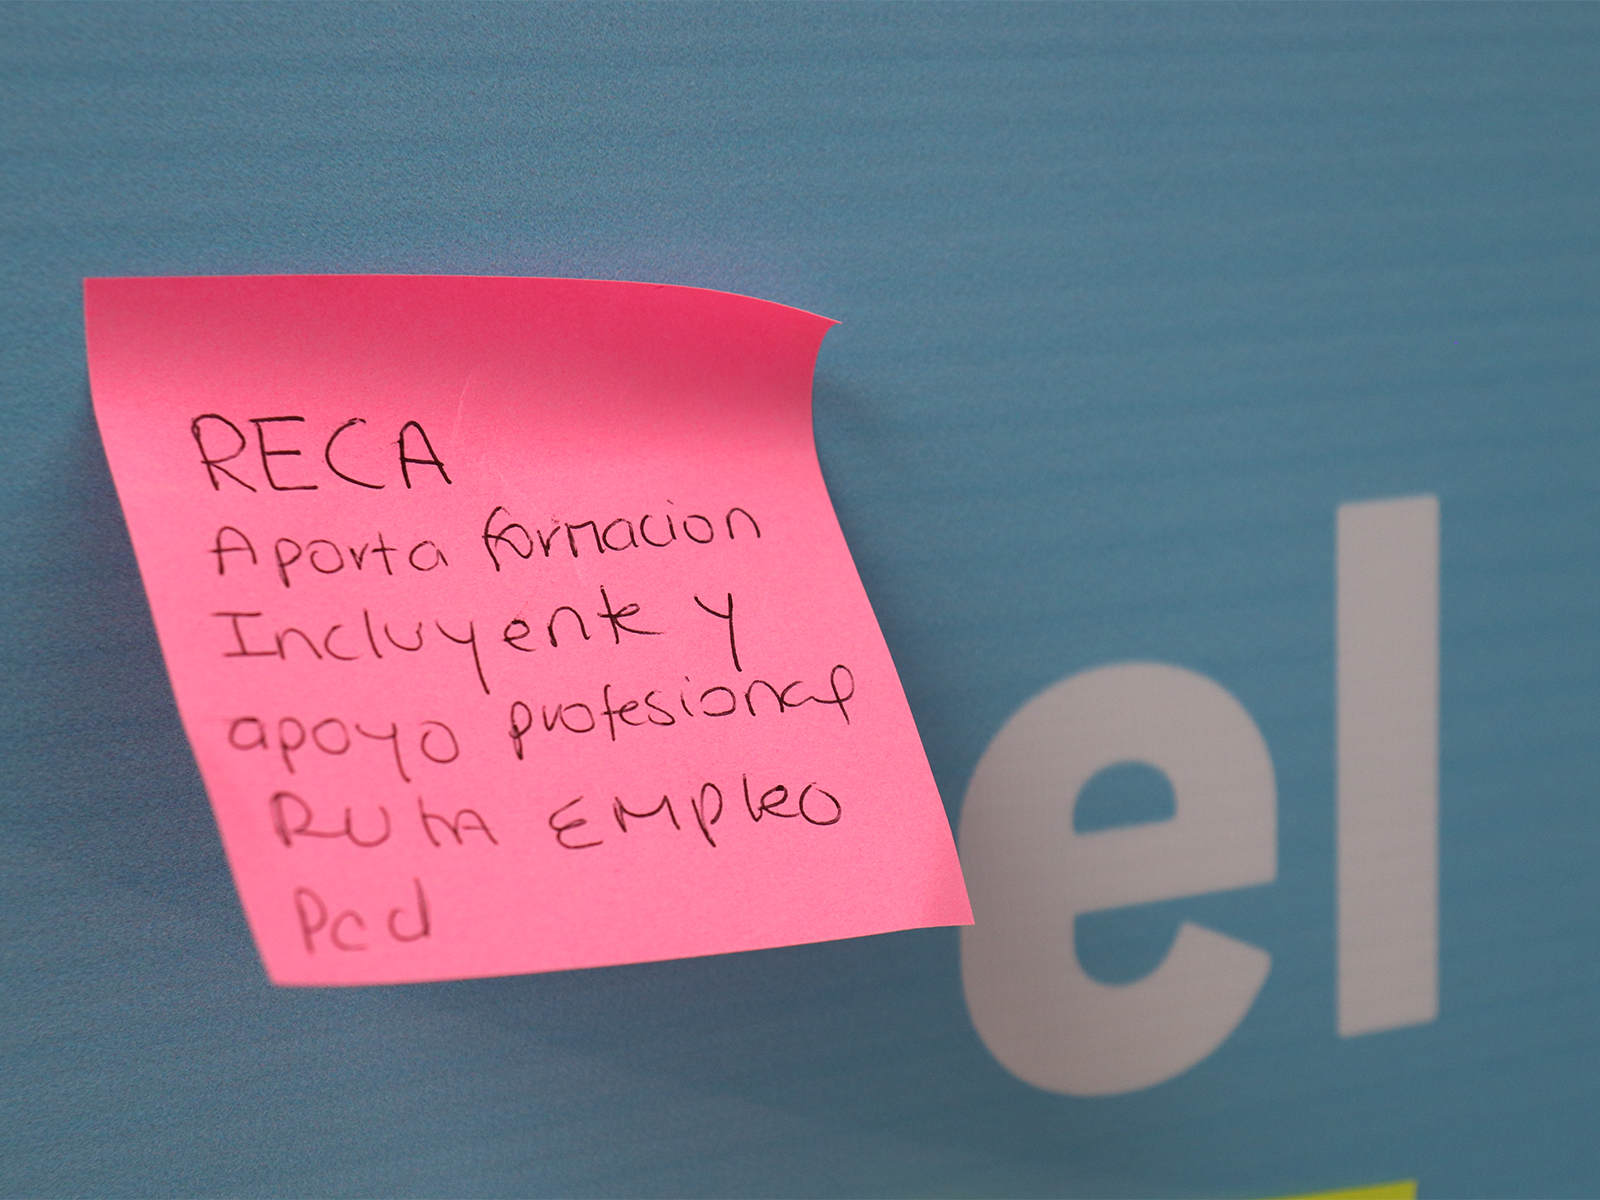 RECA
Aporta formacion
Incluyente y
apoyo profesional
Ruta EMPleo
Pcd
el